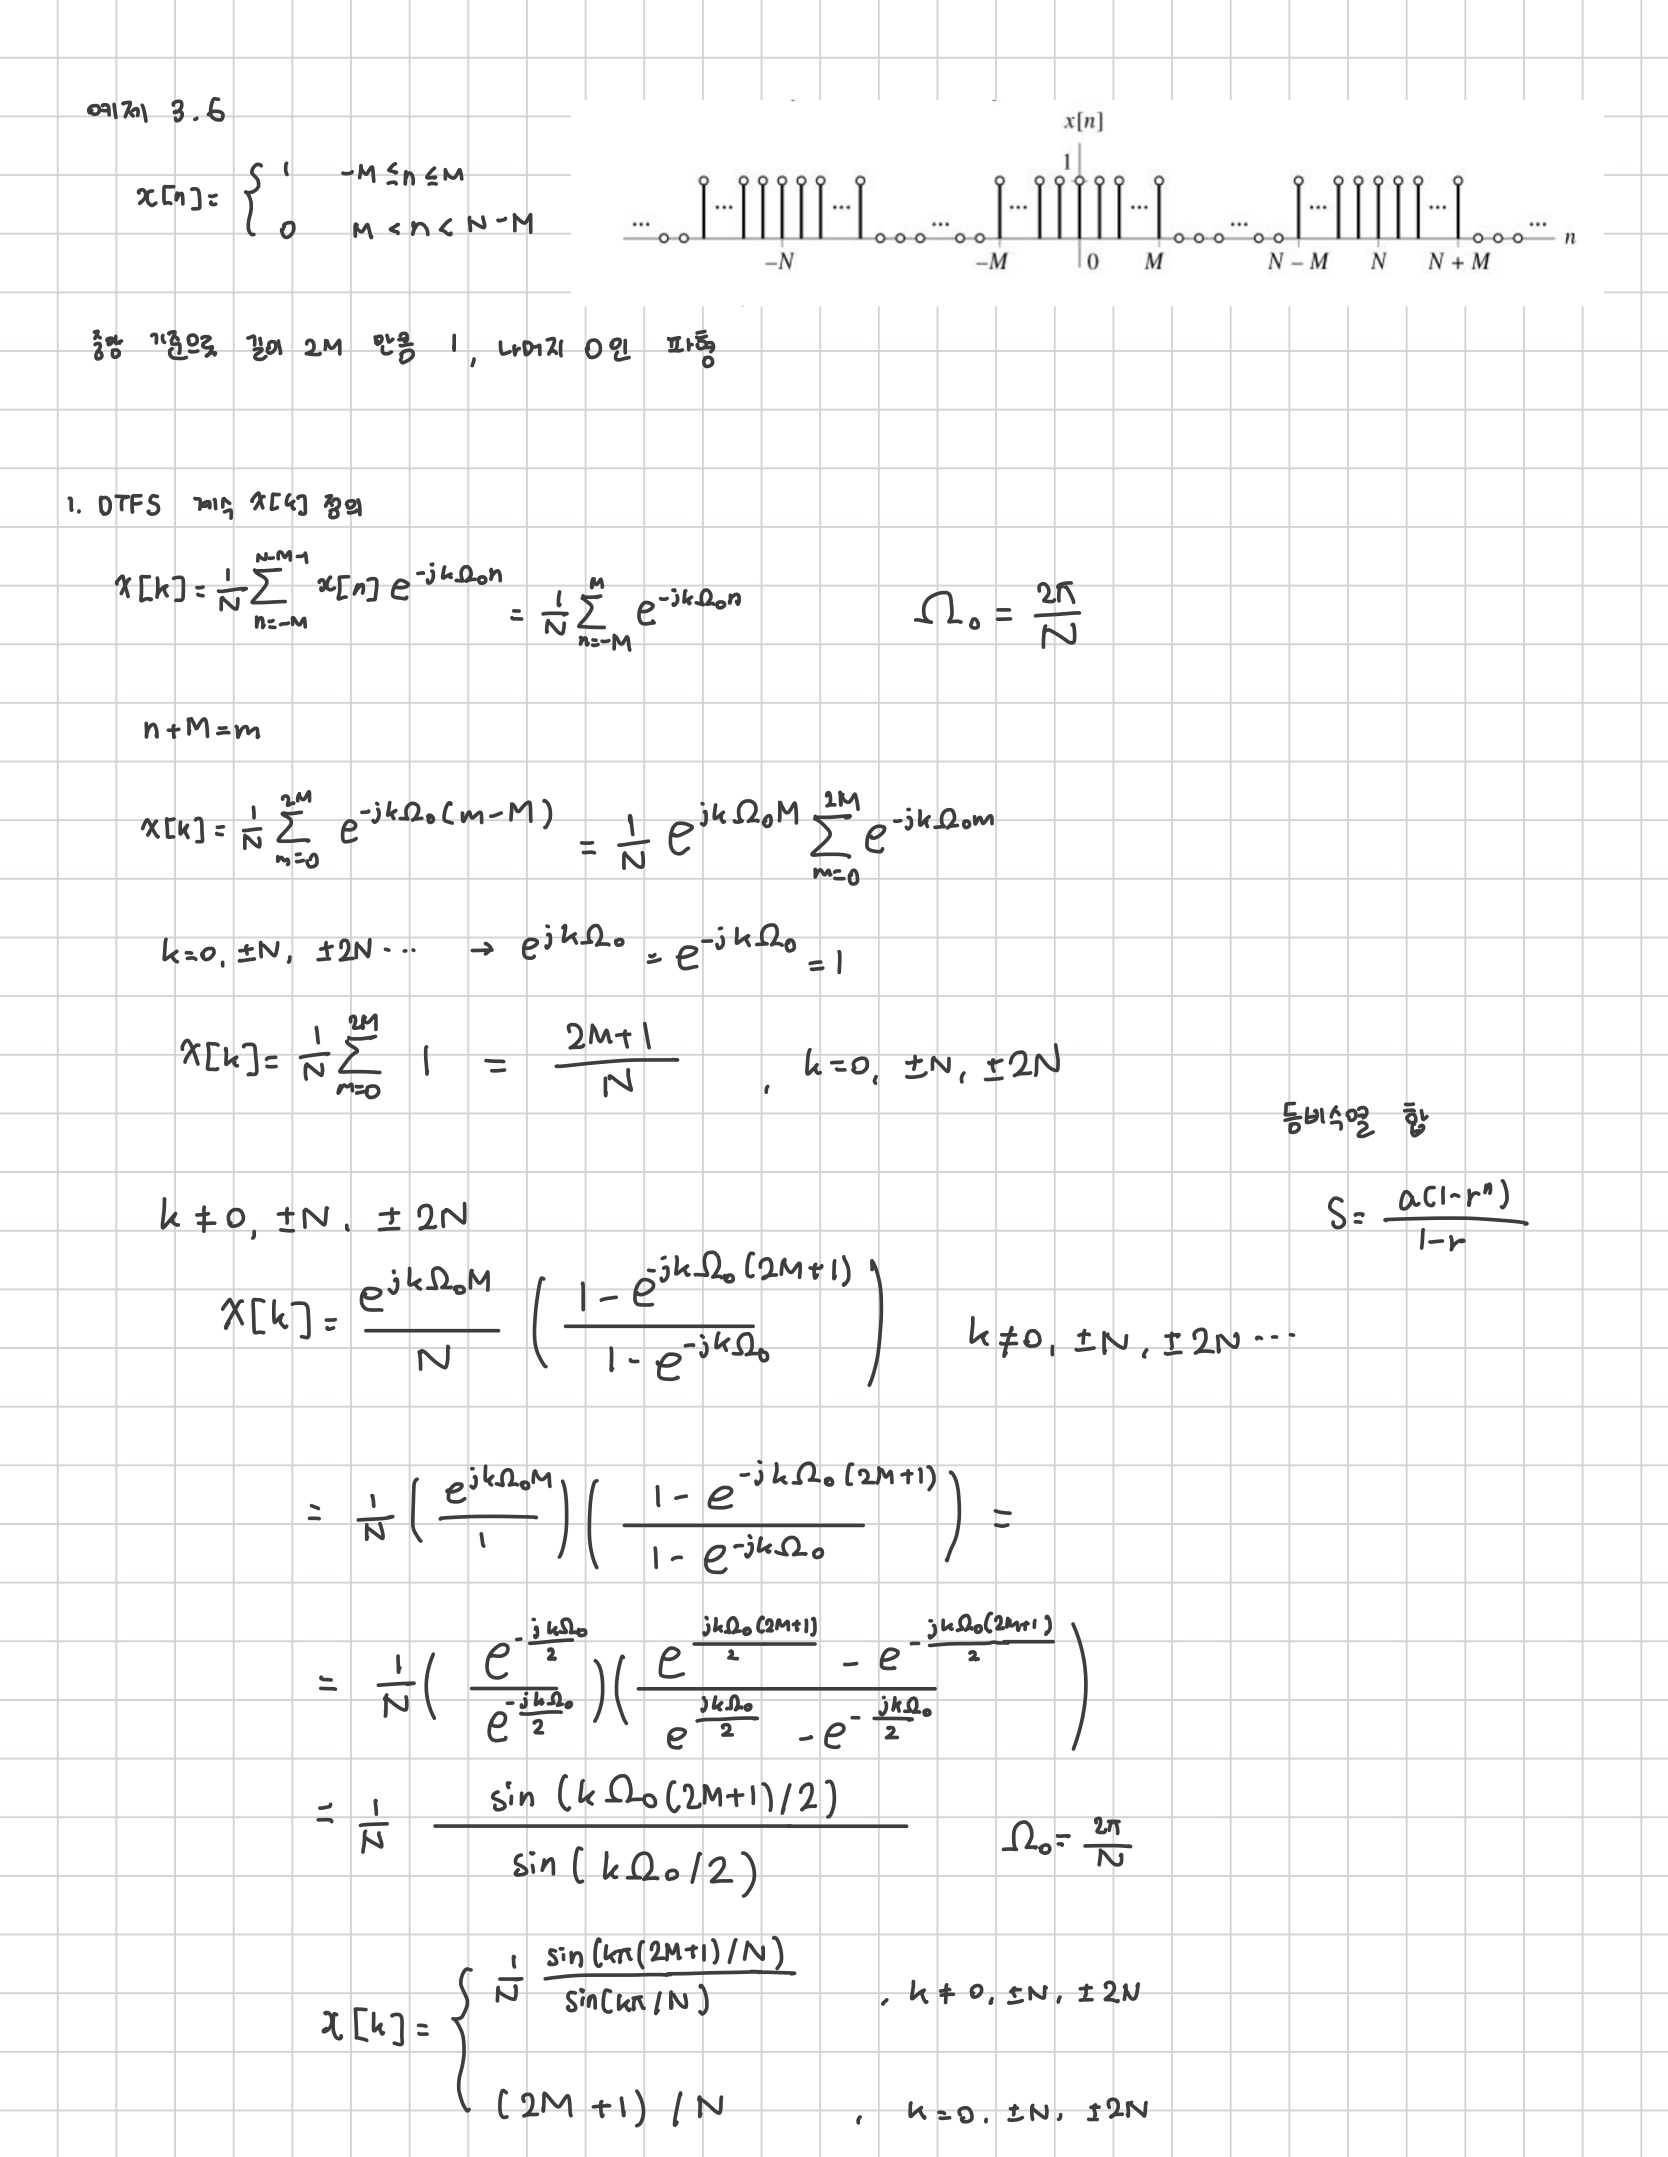 예제 3.6
x[n]
1
x[n] = { 1 -M ≤ n ≤ M
0 M < n < N-M
... ... ... ... ... ... ... ... ... ...
-N -M 0 M N - M N N + M n
중앙 기준으로 길이 2M 만큼 1, 나머지 0인 파동
1. DTFS 계수 X[k] 정의
X[k] = 1/N Σ_{n=-M}^{N-M-1} x[n] e^{-jkΩ₀n} = 1/N Σ_{n=-M}^{M} e^{-jkΩ₀n} Ω₀ = 2π/N
n+M=m
X[k] = 1/N Σ_{m=0}^{2M} e^{-jkΩ₀(m-M)} = 1/N e^{jkΩ₀M} Σ_{m=0}^{2M} e^{-jkΩ₀m}
k=0, ±N, ±2N ... → e^{jkΩ₀} = e^{-jkΩ₀} = 1
X[k] = 1/N Σ_{m=0}^{2M} 1 = (2M+1)/N , k=0, ±N, ±2N
등비수열 합
S = a(1-r^n)/(1-r)
k ≠ 0, ±N, ±2N
X[k] = e^{jkΩ₀M}/N ( (1 - e^{-jkΩ₀(2M+1)})/(1 - e^{-jkΩ₀}) ) k≠0, ±N, ±2N ...
= 1/N ( e^{jkΩ₀M}/1 ) ( (1 - e^{-jkΩ₀(2M+1)})/(1 - e^{-jkΩ₀}) ) =
= 1/N ( e^{-jkΩ₀/2}/e^{-jkΩ₀/2} ) ( (e^{jkΩ₀(2M+1)/2} - e^{-jkΩ₀(2M+1)/2})/(e^{jkΩ₀/2} - e^{-jkΩ₀/2}) )
= 1/N sin(kΩ₀(2M+1)/2)/sin(kΩ₀/2) Ω₀ = 2π/N
X[k] = { 1/N sin(kπ(2M+1)/N)/sin(kπ/N) , k ≠ 0, ±N, ±2N
(2M+1)/N , k=0, ±N, ±2N